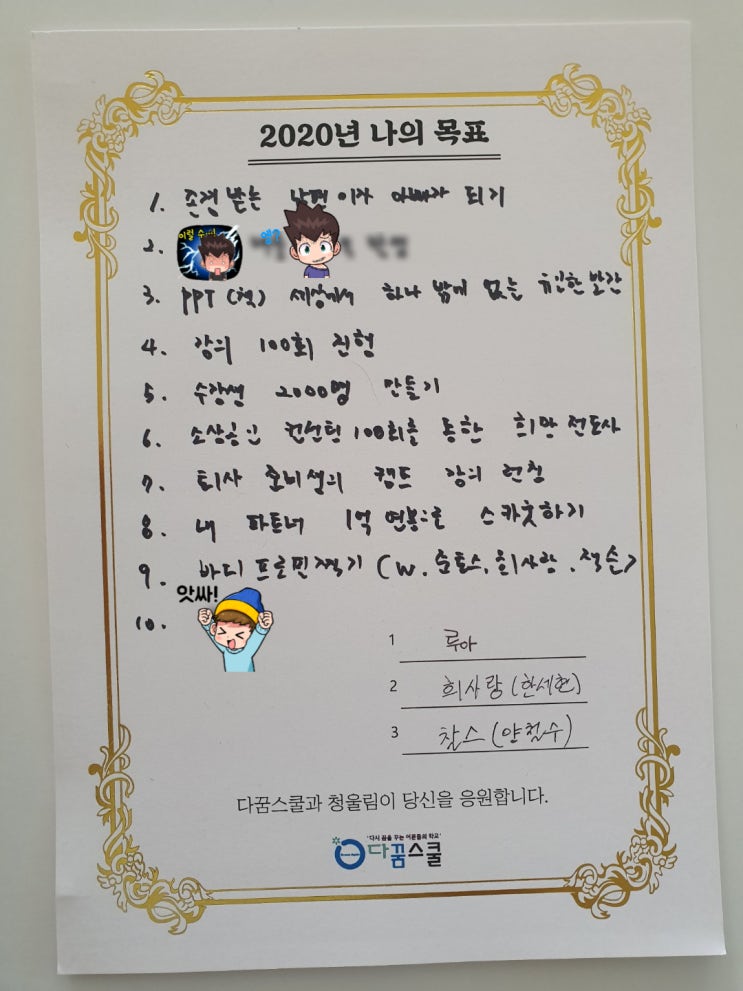 2020년 나의 목표
1. 존경 받는 남편이자 아빠가 되기
2. 이럴 수...!
3. PPT (책) 세상에서 하나 밖에 없는 유일한 발간
4. 강의 100회 진행
5. 수강생 2000명 만들기
6. 소상공인 컨설팅 100회를 통한 희망 전도사
7. 퇴사 준비생의 캠프 강의 런칭
8. 내 파트너 1억 연봉으로 스카웃하기
9. 바디 프로필 찍기 (w. 희사랑.
앗싸!
10.
1 루아
2 희사랑 (한세현)
3 찰스 (안철수)
다꿈스쿨과 청울림이 당신을 응원합니다.
'다시 꿈을 꾸는 어른들의 학교'
다꿈스쿨